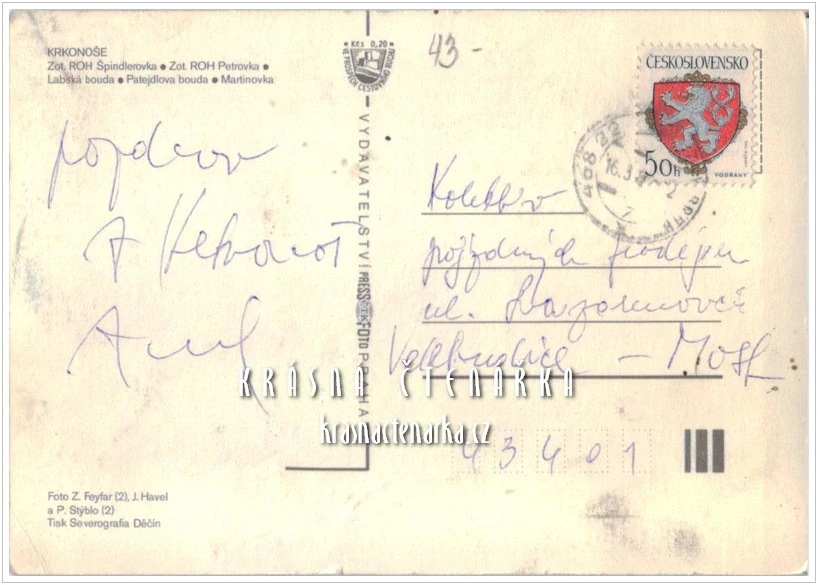 KRKONOŠE
Zot. ROH Špindlerovka ● Zot. ROH Petrovka ●
Labská bouda ● Patejdlova bouda ● Martinovka
Kčs 0,20
VE PROSPĚCH CESTOVNÍHO RUCHU
43-
ČESKOSLOVENSKO
50h
VODŇANY
468 22
16.3.
pozdrav
z Krkonoš
VYDAVATELSTVÍ PRESSFOTO PRAHA
Kolektiv
pojízdných prodejen
ul.
Velebudice - Most
KRÁSNÁ ČTENÁRKA
krasnactenarka.cz
43401
Foto Z. Feyfar (2), J. Havel
a P. Stýblo (2)
Tisk Severografia Děčín